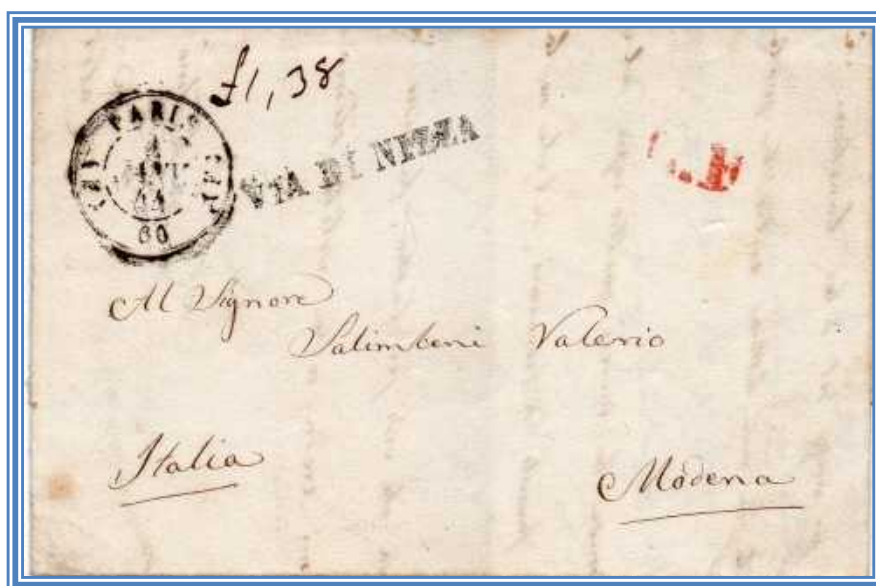 £1,38
PARIS
60
VIA DI NIZZA
Al Signore
Salimbeni Valerio
Italia
Modena